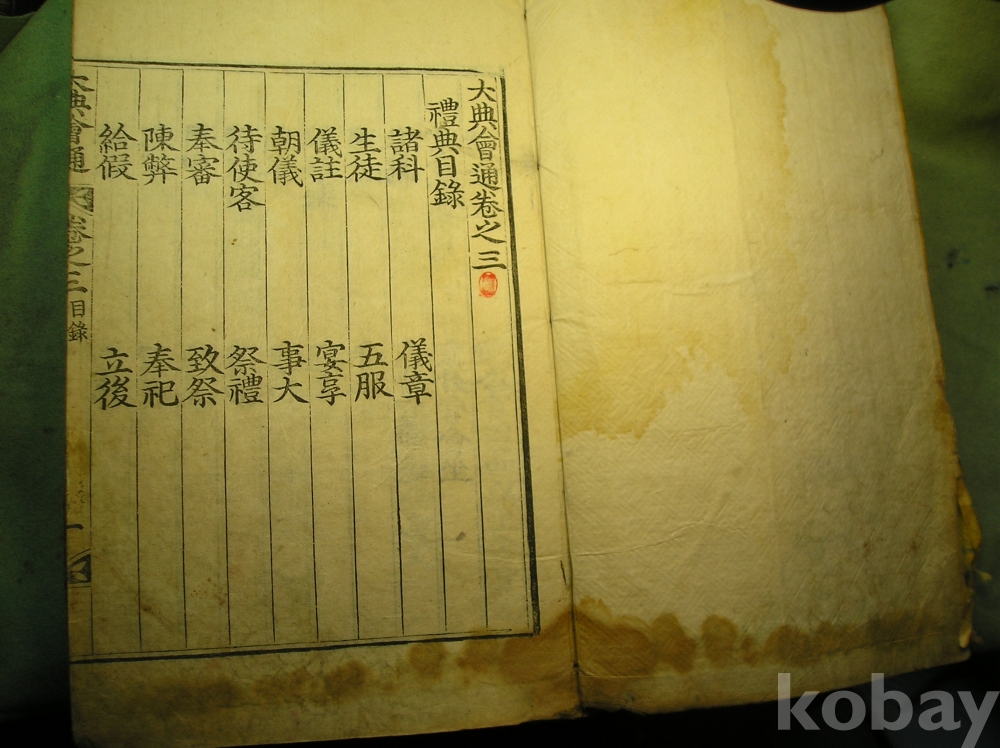 大典會通卷之三
禮典目錄
諸科 儀章
生徒 五服
儀註 宴享
朝儀 事大
待使客 祭禮
奉審 致祭
陳弊 奉祀
給假 立後
大典會通 卷之三 目錄 一
kobay